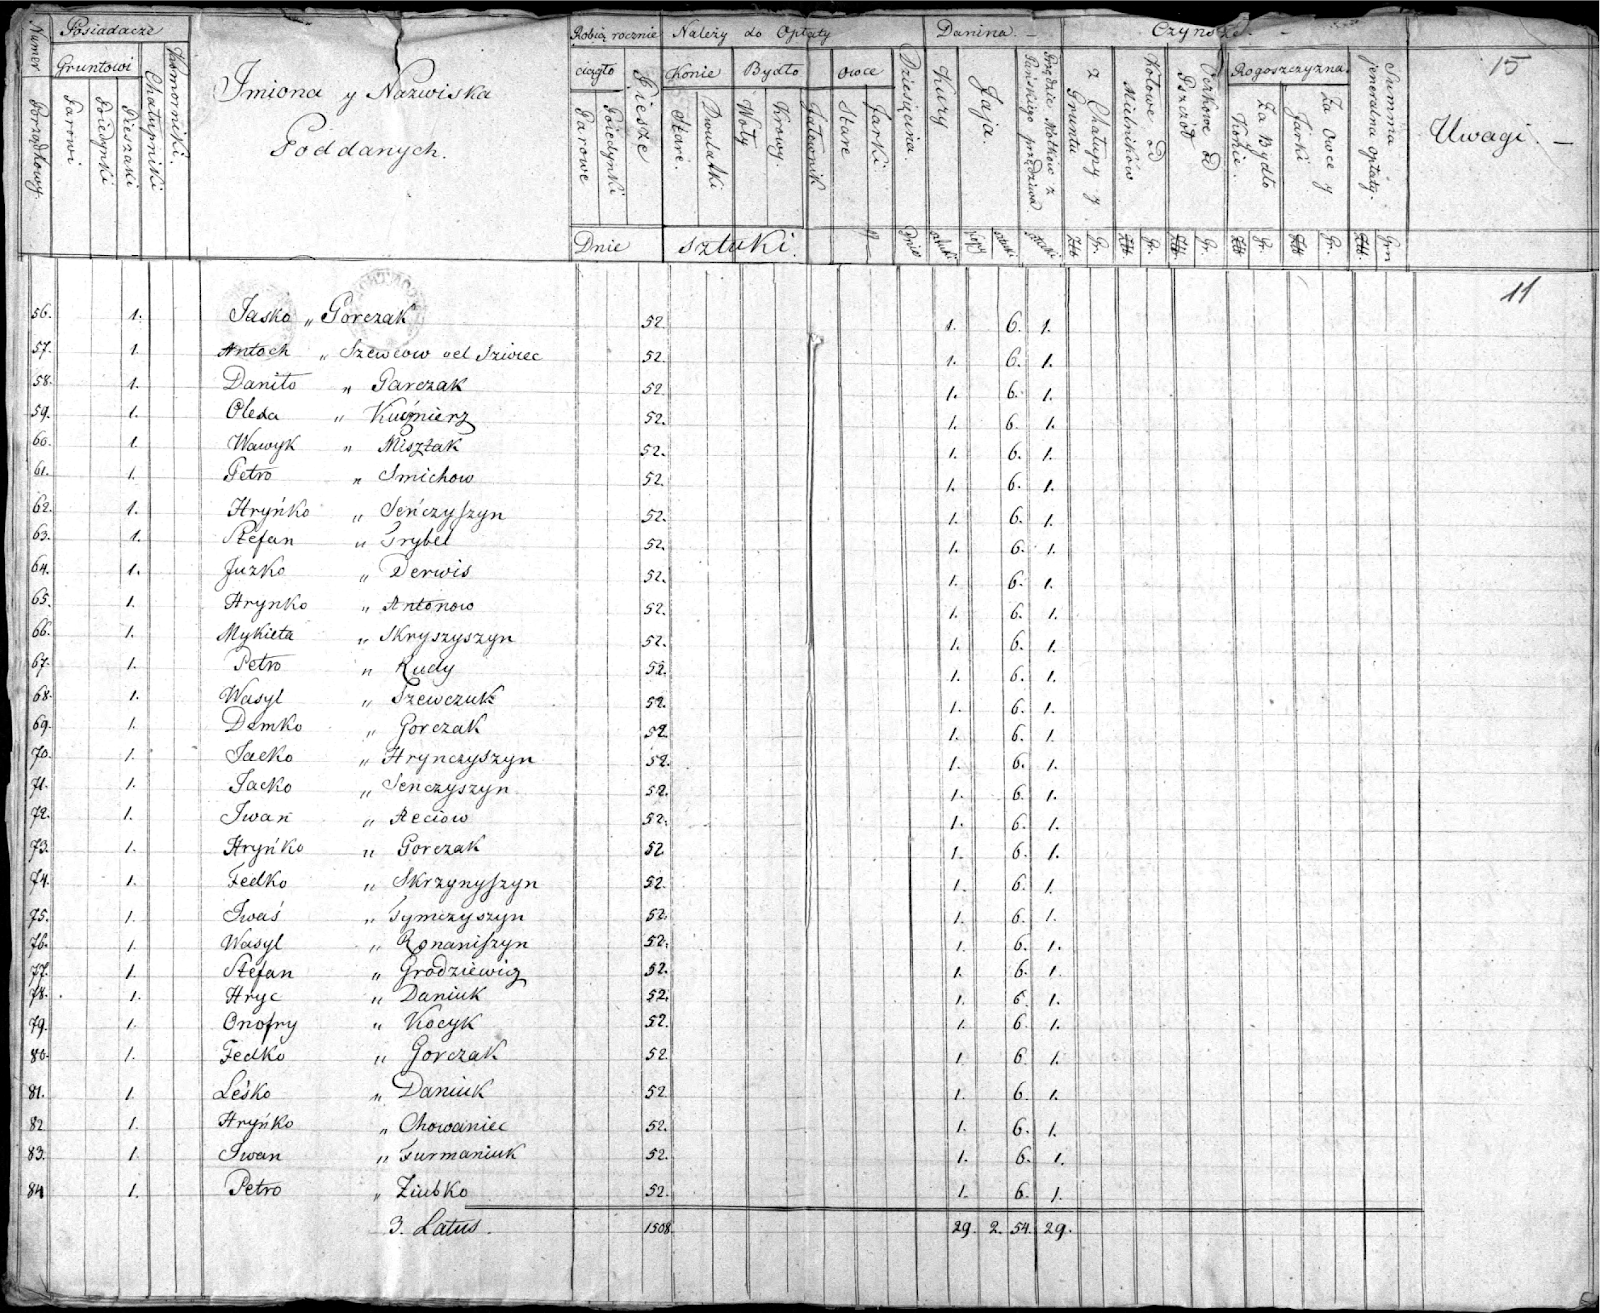 Numer Porządkowy.
Posiadacze
Gruntowi
Parowi
Poiedynki
Pieszaki
Chałupniki
Komorniki.
Imiona y Nazwiska
Poddanych.
Robią rocznie
ciągło
Parowe
Poiedynki
Piesze
Dnie
Należy do Opłaty
Konie
Stare.
Dwulatki
Bydło
Woły
Krowy.
Jałownik
owce
Stare
Jarki
sztuki.
Dziesięcina.
Danina.
Kury
Jaja.
sztuki
kopy
sztuki
sztuki
Czynsze.
z Chałupy y Gruntu
Kołowe od Mielników
Oczkowe od Pszczół
Rogoszczyzna.
Za Bydło Konie.
Za owce y Jarki
Summa jeneralna opłaty.
Złt Gr. Złt Gr. Złt Gr. Złt Gr. Złt Gr. Złt Grn
Uwagi.
15
11
56. 1. Jasko „ Gorczak 52. 1. 6. 1.
57. 1. Antoch „ Szewcow vel Sziwec 52. 1. 6. 1.
58. 1. Daniło „ Garczak 52 1. 6. 1.
59. 1. Olexa „ Kuśnierz 52. 1. 6. 1.
60. 1. Wawyk „ Misztak 52. 1. 6. 1.
61. 1. Petro „ Smichow 52. 1. 6. 1.
62. 1. Hryńko „ Seńczyszyn 52. 1. 6. 1.
63. 1. Stefan „ Grybel 52. 1. 6. 1.
64. 1. Juzko „ Derwis 52. 1. 6. 1.
65. 1. Hrynko „ Antonow 52. 1. 6. 1.
66. 1. Mykieta „ Skryszyszyn 52. 1. 6. 1.
67. 1. Petro „ Rudy 52. 1. 6. 1.
68. 1. Wasyl „ Szewczuk 52. 1. 6. 1.
69. 1. Demko „ Gorczak 52. 1. 6. 1.
70. 1. Jacko „ Hrynczyszyn 52. 1. 6. 1.
71. 1. Jacko „ Senczyszyn 52. 1. 6. 1.
72. 1. Iwan „ Aeciow 52. 1. 6. 1.
73. 1. Hryńko „ Gorczak 52 1. 6. 1.
74. 1. Fedko „ Skrzynyszyn 52. 1. 6. 1.
75. 1. Iwaś „ Tymczyszyn 52. 1. 6. 1.
76. 1. Wasyl „ Romaniszyn 52. 1. 6. 1.
77. 1. Stefan „ Grodziewicz 52. 1. 6. 1.
78. 1. Hryc „ Daniuk 52. 1. 6. 1.
79. 1. Onofry „ Kocyk 52. 1. 6. 1.
80. 1. Fedko „ Gorczak 52. 1. 6. 1.
81. 1. Leśko „ Daniuk 52. 1. 6. 1.
82 1. Hryńko „ Chowaniec 52. 1. 6. 1.
83. 1. Iwan „ Furmaniuk 52. 1. 6. 1.
84 1. Petro „ Ziubko 52. 1. 6. 1.
3. Latus. 1508. 29. 2. 54. 29.